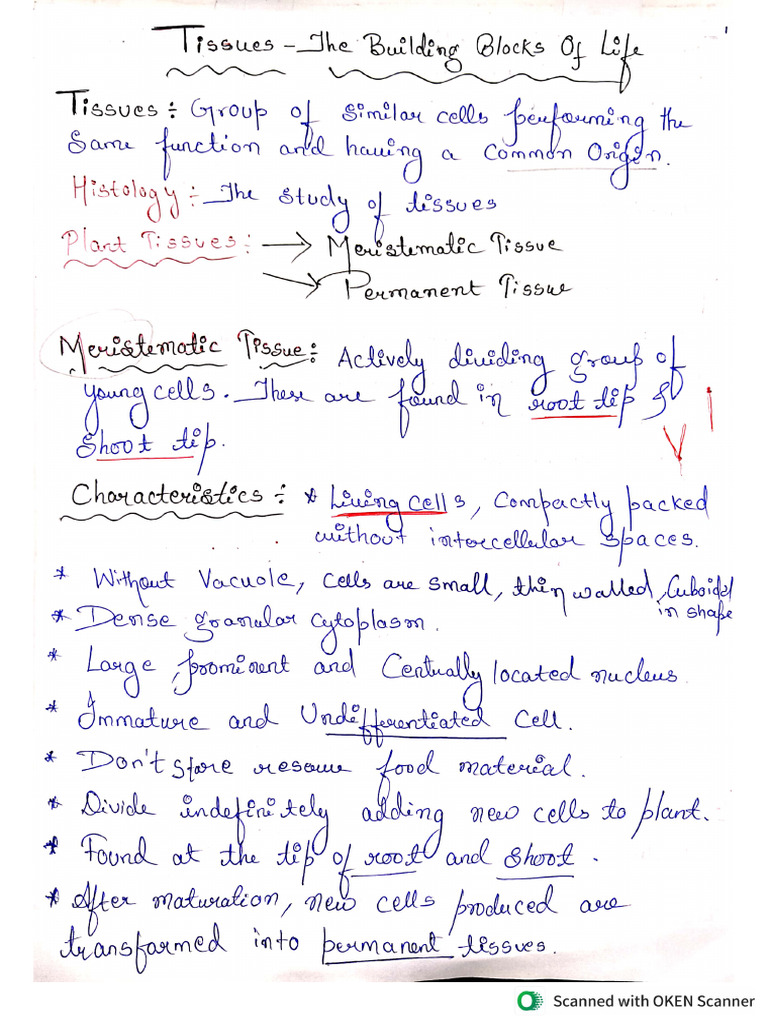 1
Tissues - The Building Blocks Of Life
Tissues :- Group of similar cells performing the
same function and having a common Origin.
Histology :- The study of tissues
Plant Tissues :- → Meristematic Tissue
→ Permanent Tissue
Meristematic Tissue :- Actively dividing group of
young cells. These are found in root tip &
Shoot tip.
Characteristics :- * Living cells, Compactly packed
without intercellular spaces.
* Without Vacuole, cells are small, thin walled, Cuboidel
in shape
* Dense granular cytoplasm.
* Large, prominent and Centrually located nucleus.
* Immature and Undifferentiated Cell.
* Don't store reserve food material.
* Divide indefinitely adding new cells to plant.
* Found at the tip of root and shoot.
* After maturation, new cells produced are
transformed into permanent tissues.
Scanned with OKEN Scanner